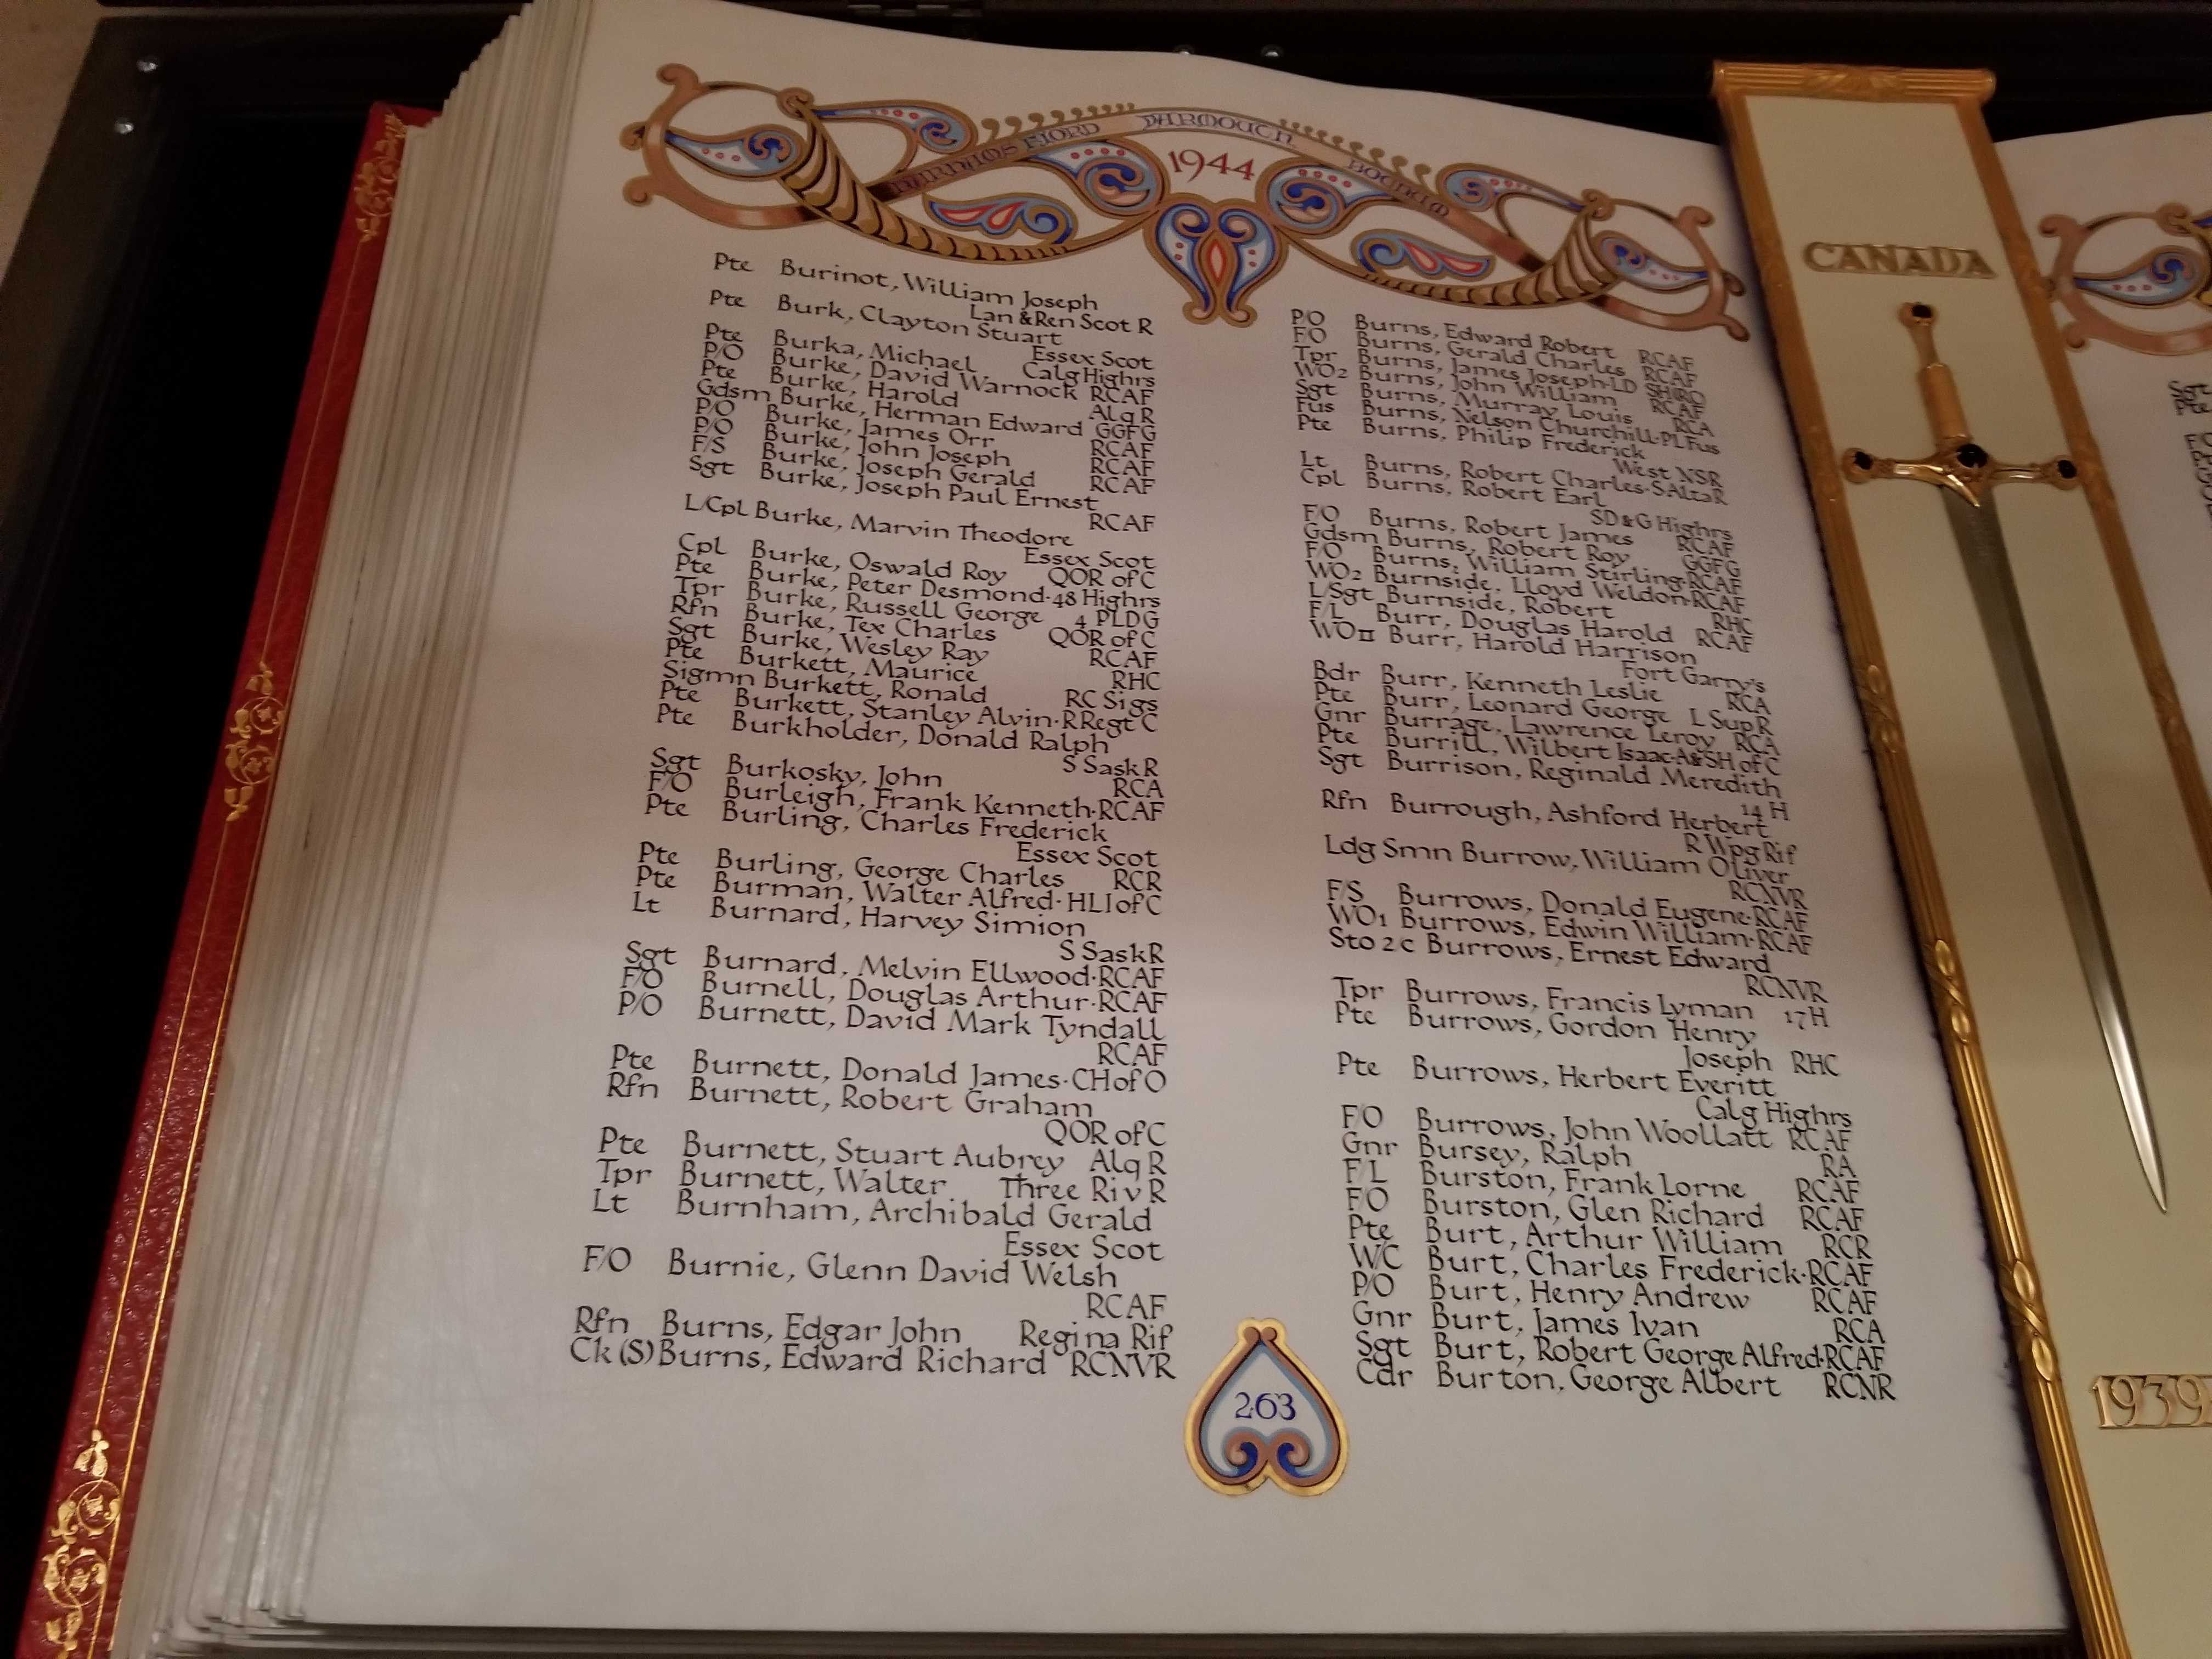 FJORD YARMOUTH
1944
Pte Burinot, William Joseph
Lan & Ren Scot R
Pte Burk, Clayton Stuart
Essex Scot
Pte Burka, Michael Calg Highrs
P/O Burke, David Warnock RCAF
Pte Burke, Harold Alq R
Gdsm Burke, Herman Edward GGFG
P/O Burke, James Orr RCAF
P/O Burke, John Joseph RCAF
F/S Burke, Joseph Gerald RCAF
Sgt Burke, Joseph Paul Ernest
RCAF
L/Cpl Burke, Marvin Theodore
Essex Scot
Cpl Burke, Oswald Roy QOR of C
Pte Burke, Peter Desmond·48 Highrs
Tpr Burke, Russell George 4 PLDG
Rfn Burke, Tex Charles QOR of C
Sgt Burke, Wesley Ray RCAF
Pte Burkett, Maurice RHC
Sigmn Burkett, Ronald RC Sigs
Pte Burkett, Stanley Alvin·R Regt C
Pte Burkholder, Donald Ralph
S Sask R
Sgt Burkosky, John RCA
F/O Burleigh, Frank Kenneth·RCAF
Pte Burling, Charles Frederick
Essex Scot
Pte Burling, George Charles RCR
Pte Burman, Walter Alfred·HLI of C
Lt Burnard, Harvey Simion
S Sask R
Sgt Burnard, Melvin Ellwood·RCAF
F/O Burnell, Douglas Arthur·RCAF
P/O Burnett, David Mark Tyndall
RCAF
Pte Burnett, Donald James·CH of O
Rfn Burnett, Robert Graham
QOR of C
Pte Burnett, Stuart Aubrey Alq R
Tpr Burnett, Walter Three Riv R
Lt Burnham, Archibald Gerald
Essex Scot
F/O Burnie, Glenn David Welsh
RCAF
Rfn Burns, Edgar John Regina Rif
Ck (S) Burns, Edward Richard RCNVR
P/O Burns, Edward Robert RCAF
F/O Burns, Gerald Charles RCAF
Tpr Burns, James Joseph·LD SH(RC)
WO2 Burns, John William RCAF
Sgt Burns, Murray Louis RCA
Fus Burns, Nelson Churchill·PL Fus
Pte Burns, Philip Frederick
West NSR
Lt Burns, Robert Charles·S Alta R
Cpl Burns, Robert Earl
SD & G Highrs
F/O Burns, Robert James RCAF
Gdsm Burns, Robert Roy GGFG
F/O Burns, William Stirling·RCAF
WO2 Burnside, Lloyd Weldon·RCAF
L/Sgt Burnside, Robert RHC
F/L Burr, Douglas Harold RCAF
WO II Burr, Harold Harrison
Fort Garry's
Bdr Burr, Kenneth Leslie RCA
Pte Burr, Leonard George L Sup R
Gnr Burrage, Lawrence Leroy RCA
Pte Burrill, Wilbert Isaac·A&SH of C
Sgt Burrison, Reginald Meredith
14 H
Rfn Burrough, Ashford Herbert
R Wpg Rif
Ldg Smn Burrow, William Oliver
RCNVR
F/S Burrows, Donald Eugene·RCAF
WO1 Burrows, Edwin William·RCAF
Sto 2 c Burrows, Ernest Edward
RCNVR
Tpr Burrows, Francis Lyman 17 H
Pte Burrows, Gordon Henry
Joseph RHC
Pte Burrows, Herbert Everitt
Calg Highrs
F/O Burrows, John Woollatt RCAF
Gnr Bursey, Ralph RA
F/L Burston, Frank Lorne RCAF
F/O Burston, Glen Richard RCAF
Pte Burt, Arthur William RCR
W/C Burt, Charles Frederick·RCAF
P/O Burt, Henry Andrew RCAF
Gnr Burt, James Ivan RCA
Sgt Burt, Robert George Alfred·RCAF
Cdr Burton, George Albert RCNR
263
CANADA
1939
Sgt
Pte